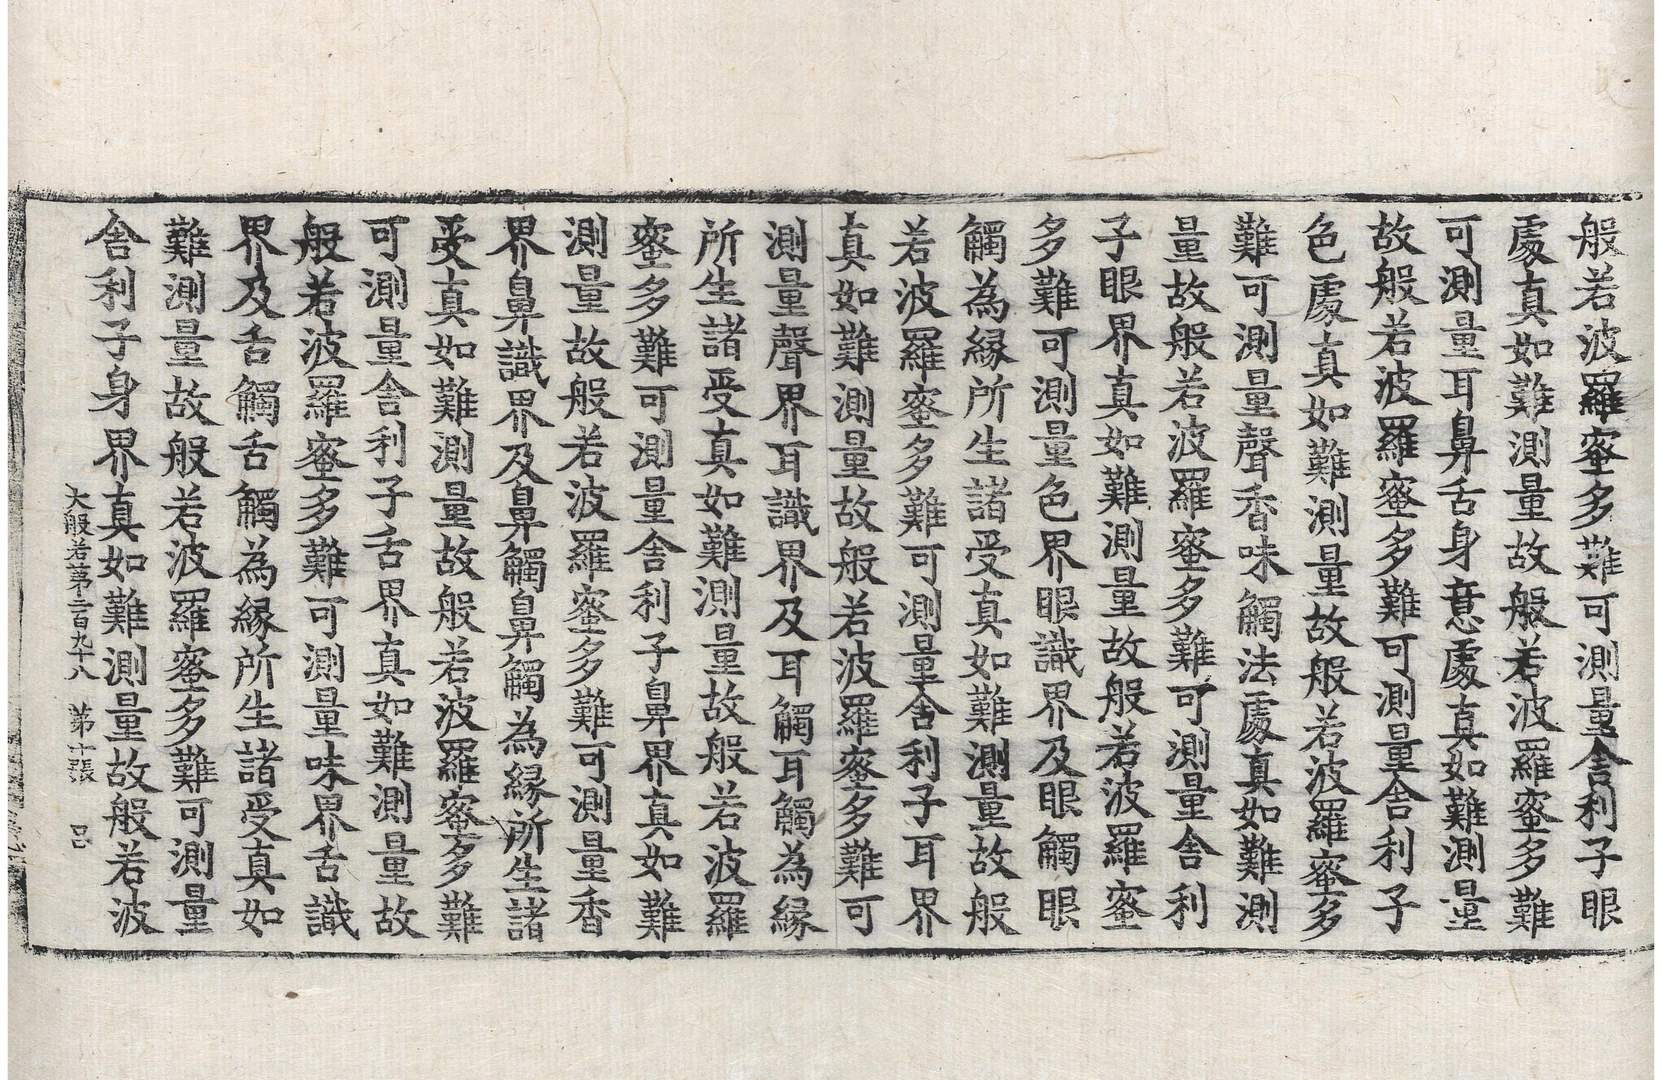 般若波羅蜜多難可測量舍利子眼
處真如難測量故般若波羅蜜多難
可測量耳鼻舌身意處真如難測量
故般若波羅蜜多難可測量舍利子
色處真如難測量故般若波羅蜜多
難可測量聲香味觸法處真如難測
量故般若波羅蜜多難可測量舍利
子眼界真如難測量故般若波羅蜜
多難可測量色界眼識界及眼觸眼
觸為緣所生諸受真如難測量故般
若波羅蜜多難可測量舍利子耳界
真如難測量故般若波羅蜜多難可
測量聲界耳識界及耳觸耳觸為緣
所生諸受真如難測量故般若波羅
蜜多難可測量舍利子鼻界真如難
測量故般若波羅蜜多難可測量香
界鼻識界及鼻觸鼻觸為緣所生諸
受真如難測量故般若波羅蜜多難
可測量舍利子舌界真如難測量故
般若波羅蜜多難可測量味界舌識
界及舌觸舌觸為緣所生諸受真如
難測量故般若波羅蜜多難可測量
舍利子身界真如難測量故般若波
大般若第二百九十八 第十張 呂